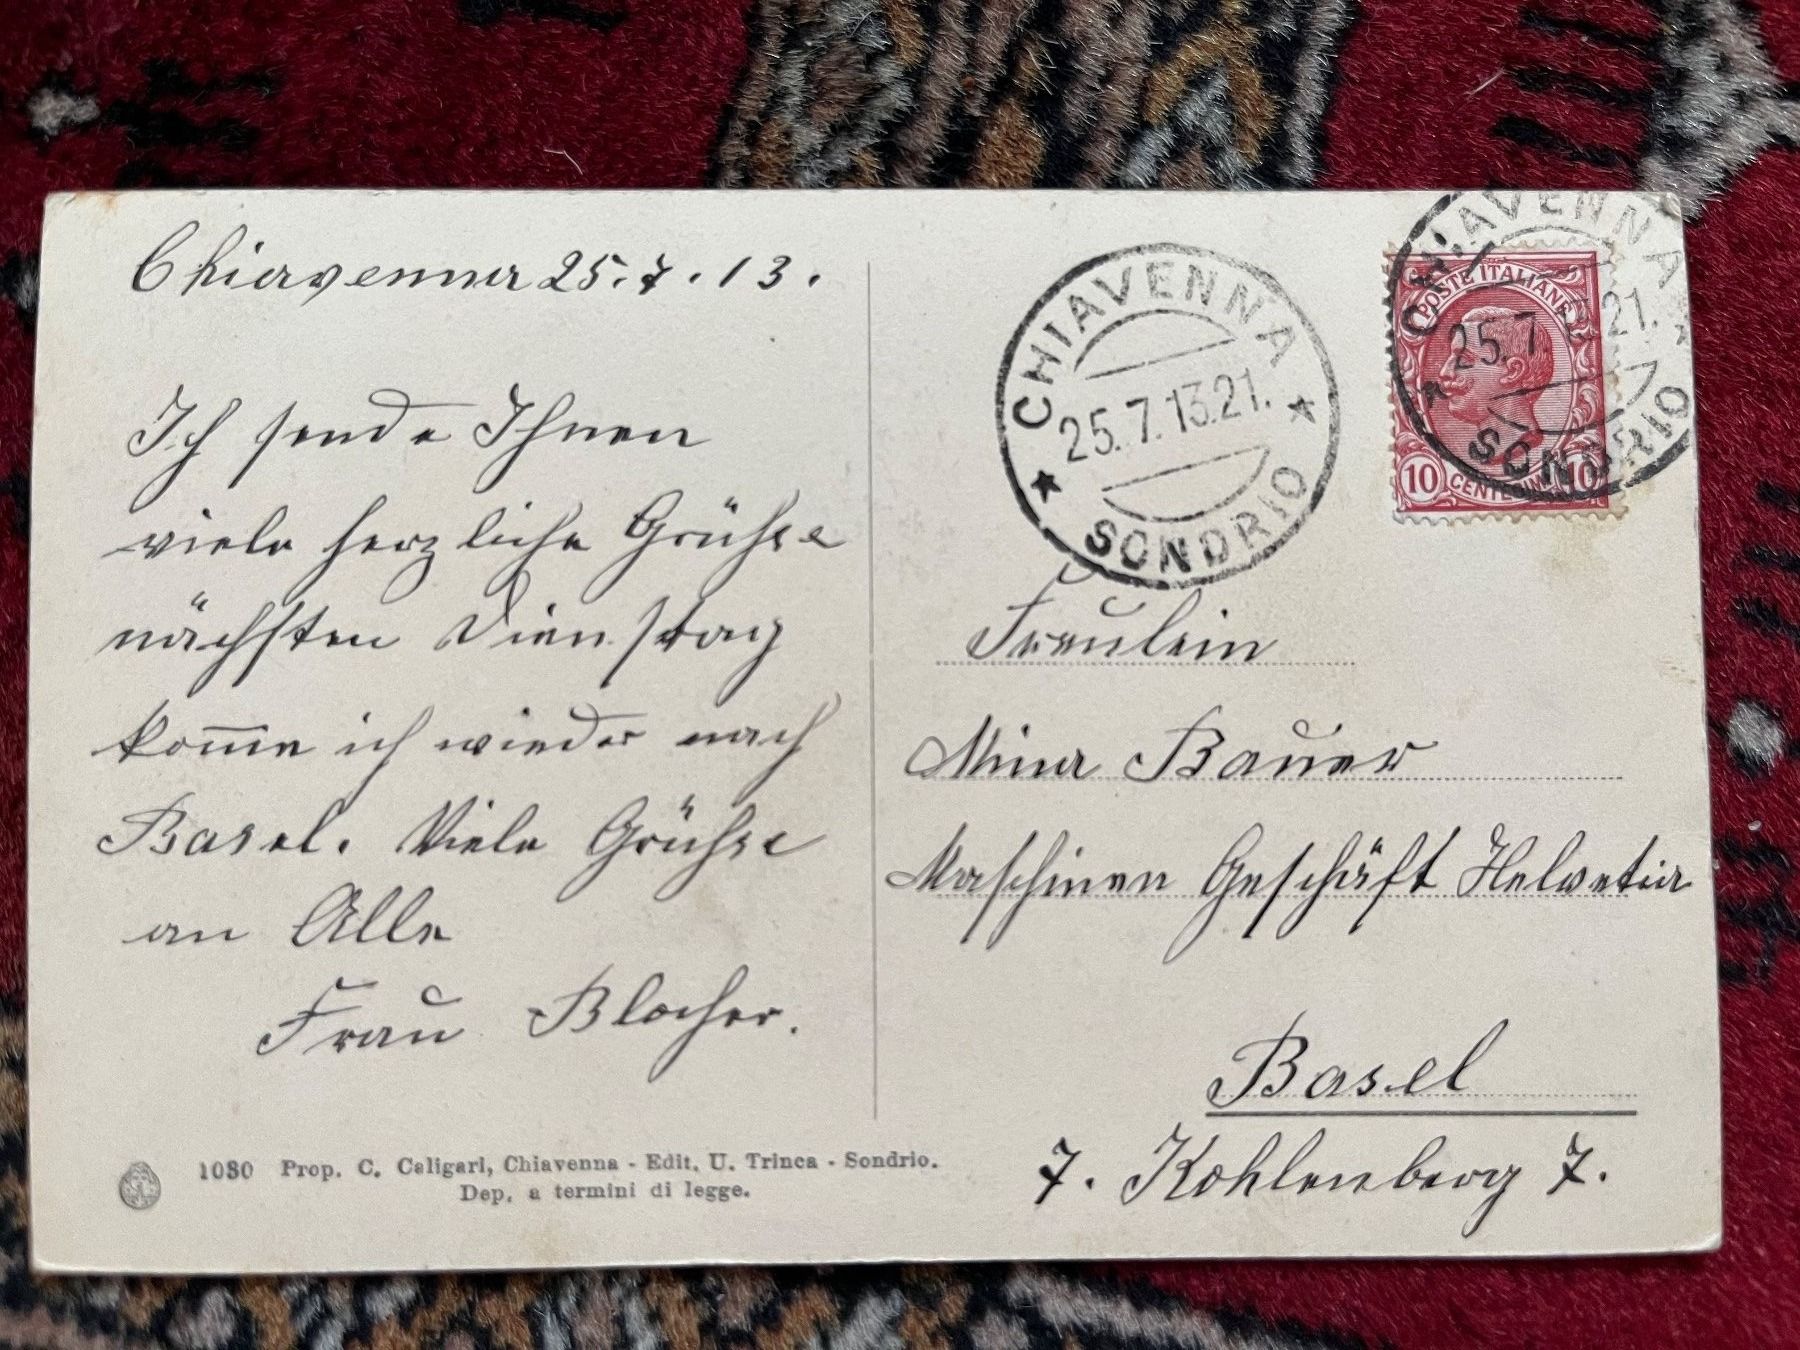 Chiavenna 25.7.13.
Ich sende Ihnen
viele herzliche Grüße
nächsten Dienstag
kom̄e ich wieder nach
Basel. Viele Grüße
an Alle
Frau Blocher.
1080 Prop. C. Caligari, Chiavenna - Edit. U. Trinca - Sondrio.
Dep. a termini di legge.
CHIAVENNA
25.7.13.21.
SONDRIO
CHIAVENNA
25.7. 21.
SONDRIO
POSTE ITALIANE
10 CENTESIMI 10
Fräulein
Mina Bauer
Maschinen Geschäft Helvetia
Basel
7. Kohlenberg 7.